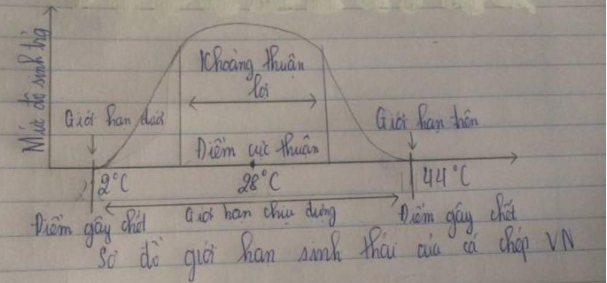 Mức độ sinh trưởng
Khoảng thuận
lợi
Giới hạn dưới
Giới hạn trên
Điểm cực thuận
2°C
28°C
44°C
Giới hạn chịu đựng
Điểm gây chết
Điểm gây chết
Sơ đồ giới hạn sinh thái của cá chép VN